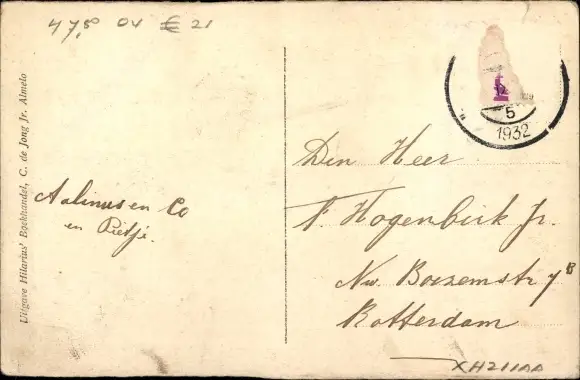 47,50 OV € 21
Uitgave Hilarius' Boekhandel, C. de Jong Jr. Almelo
5
1932
Aalinus en Co
en Pietje.
Den Heer
F. Hogenbirk Jr.
Nw. Boezemstr 7B
Rotterdam
XH211AA